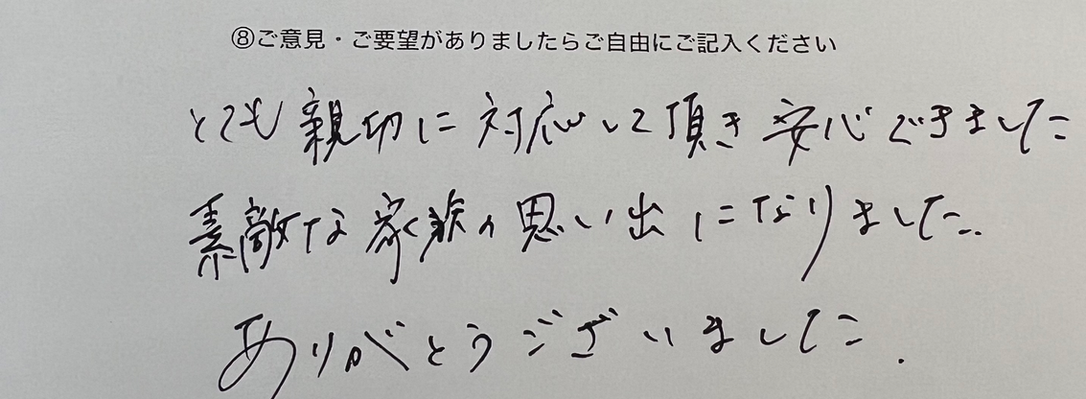 ⑧ご意見・ご要望がありましたらご自由にご記入ください
とても親切に対応して頂き安心できました
素敵な家族の思い出になりました。
ありがとうございました.